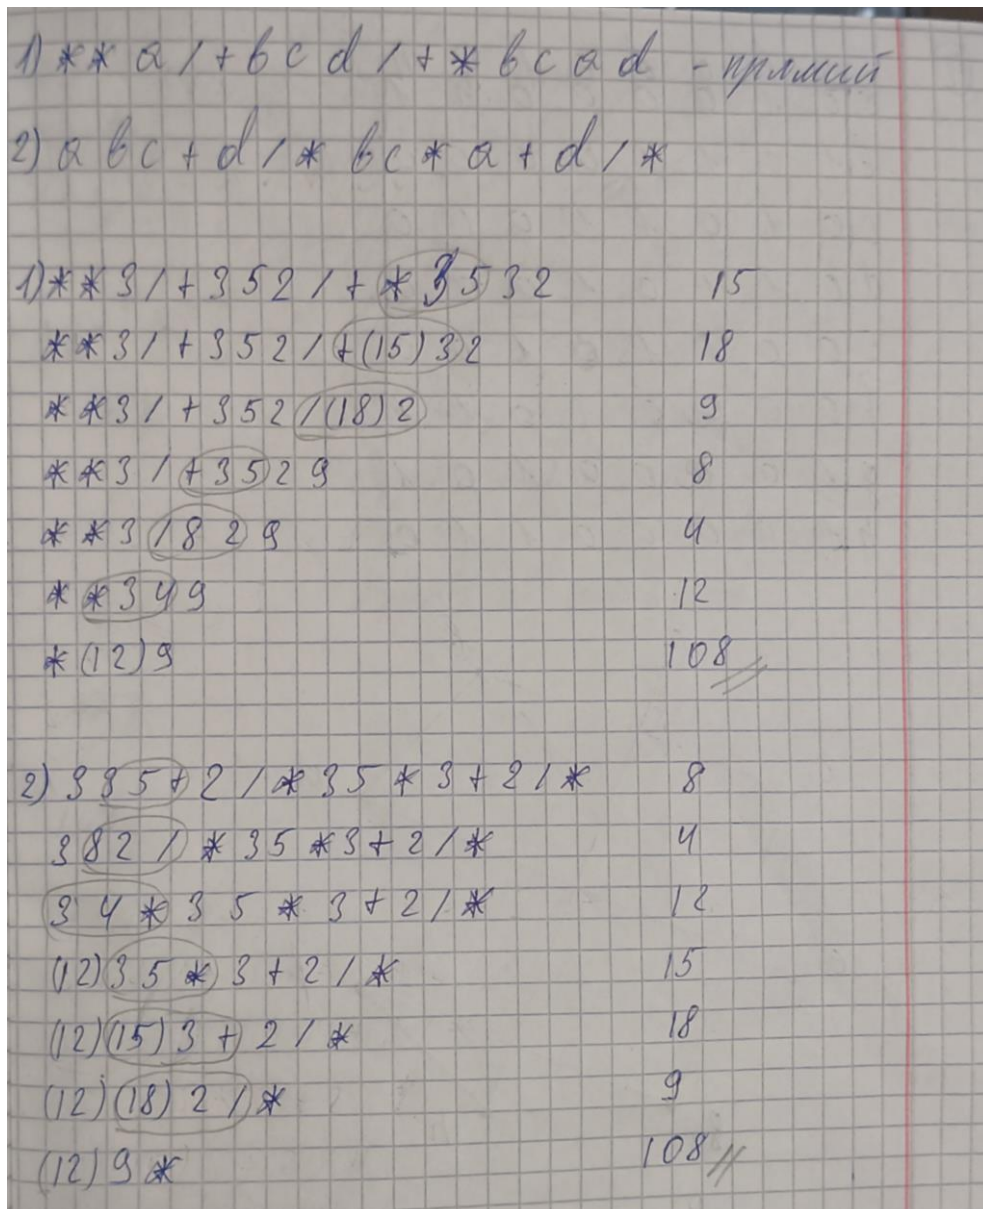 1) * * a / + b c d / + * b c a d - прямий
2) a b c + d / * b c * a + d / *
1) * * 3 / + 3 5 2 / + * 3 5 3 2 15
* * 3 / + 3 5 2 / + (15) 3 2 18
* * 3 / + 3 5 2 / (18) 2 9
* * 3 / + 3 5 2 9 8
* * 3 / 8 2 9 4
* * 3 4 9 12
* (12) 9 108
2) 3 3 5 + 2 / * 3 5 * 3 + 2 / * 8
3 8 2 / * 3 5 * 3 + 2 / * 4
3 4 * 3 5 * 3 + 2 / * 12
(12) 3 5 * 3 + 2 / * 15
(12) (15) 3 + 2 / * 18
(12) (18) 2 / * 9
(12) 9 * 108